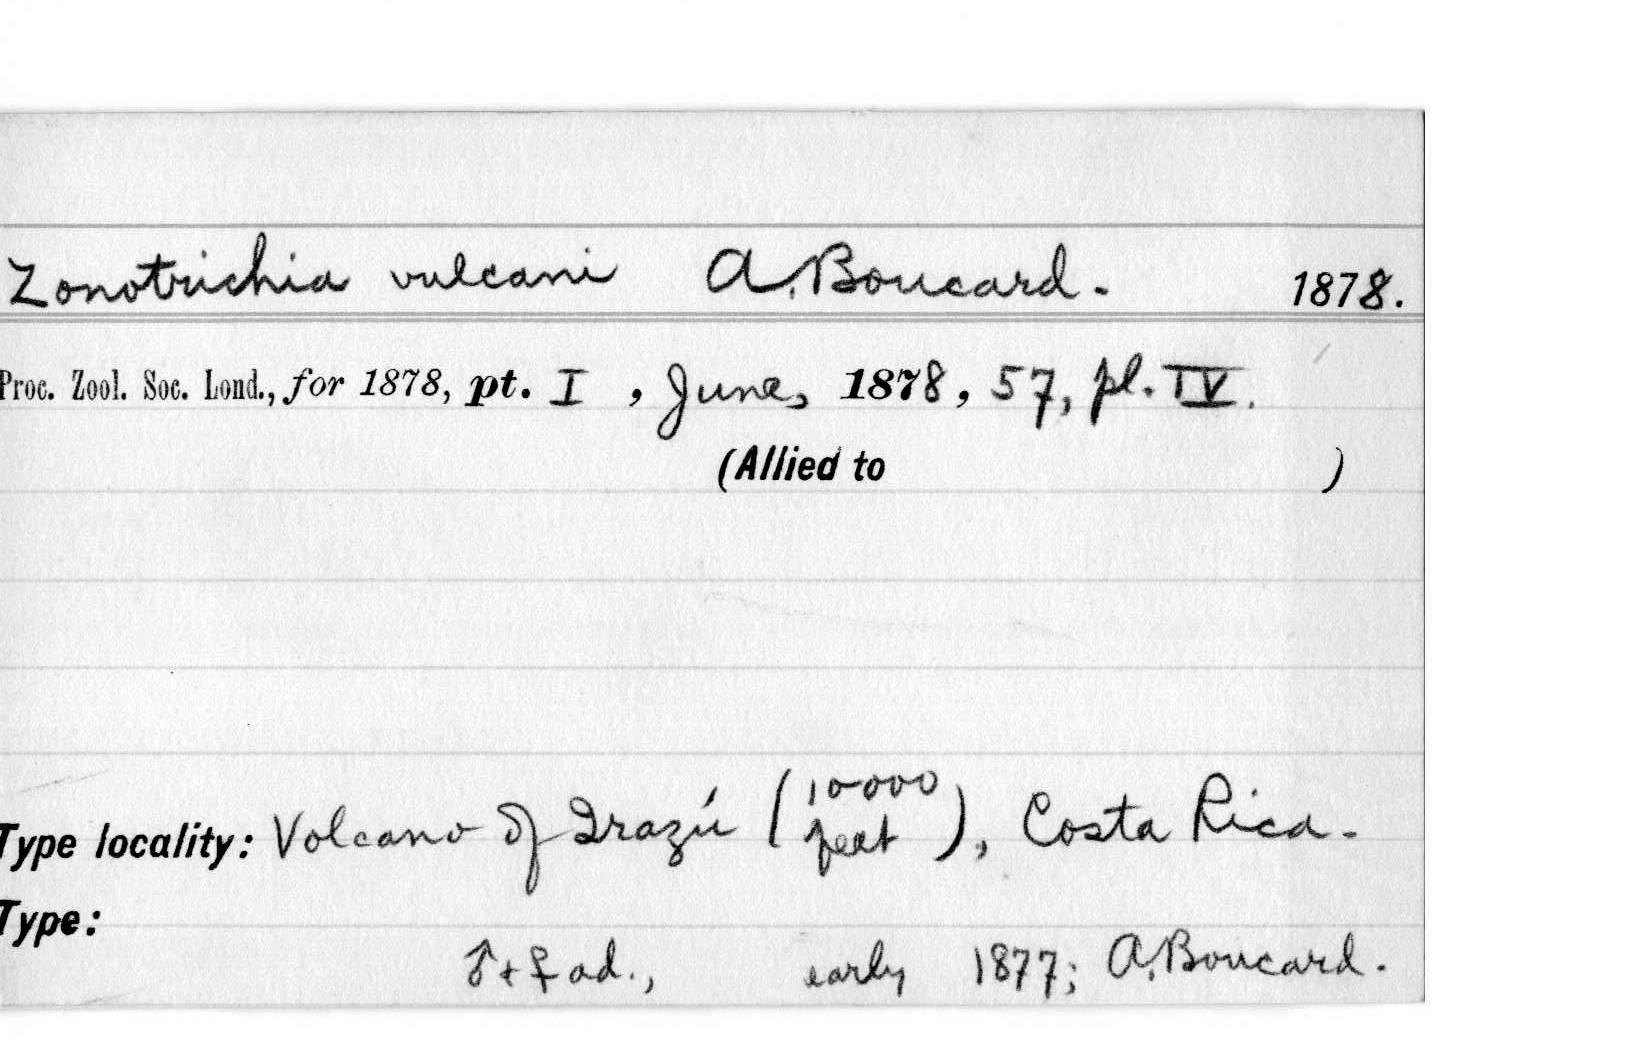 Zonotrichia vulcani A. Boucard. 1878.
Proc. Zool. Soc. Lond., for 1878, pt. I , June, 1878, 57, pl. IV.
(Allied to )
Type locality: Volcano of Irazú (10000 feet), Costa Rica.
Type:
♂ + ♀ ad., early 1877; A. Boucard.